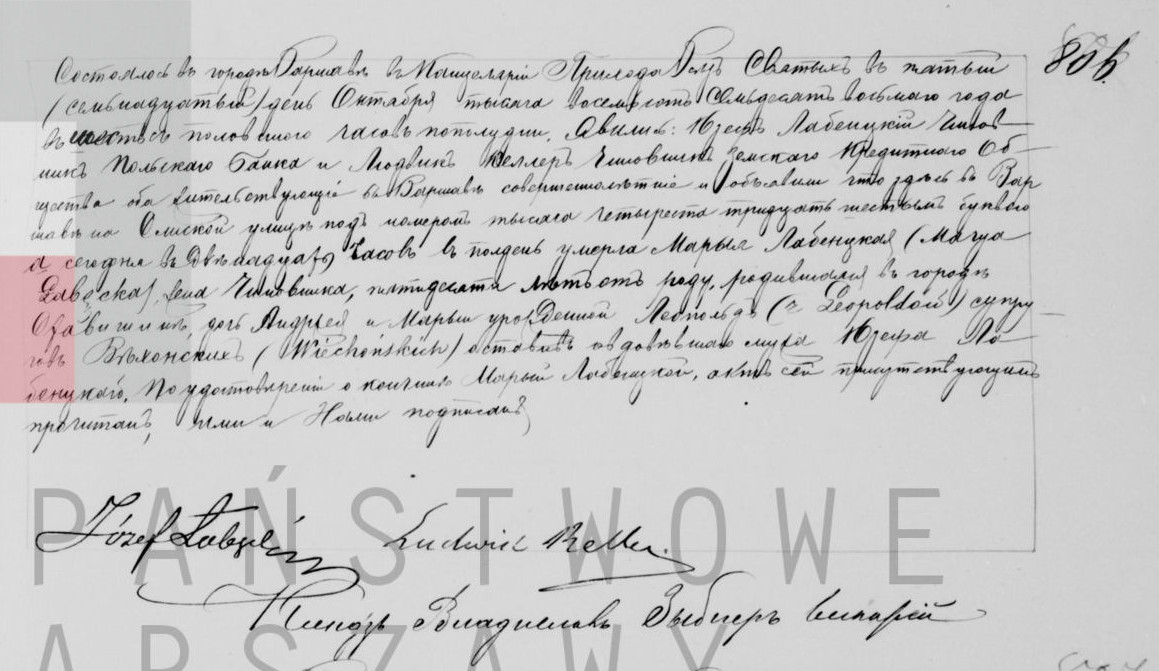 806.
Состоялось въ городѣ Варшавѣ въ Канцеляріи Прихода Всѣхъ Святыхъ въ пятый
(семьнадцатый) день Октября тысяча восемьсотъ семьдесятъ восьмаго года
въ шесть съ половиною часовъ пополудни. Явились: Юзефъ Лабенцкій Чинов-
никъ Польскаго Банка и Людвикъ Келлеръ Чиновникъ Земскаго Кредитнаго Об-
щества оба жительствующіе въ Варшавѣ совершеннолѣтніе и объявили что здѣсь въ Вар
шавѣ на улицѣ подъ номеромъ тысяча четыреста тридцать шестымъ буквою
а сегодня въ Двѣнадцать часовъ въ полдень умерла Марья Лабенцкая (Marya
Łabęcka) жена Чиновника, пятидесяти лѣтъ отъ роду, родившаяся въ городѣ
дочь Андрея и Марьи урожденной Леопольдъ (z Leopoldów) супру-
говъ Вѣхонскихъ (Wiechońskich) оставивъ овдовѣвшаго мужа Юзефа Ла-
бенцкаго. По удостовѣреніи о кончинѣ Марьи Лабенцкой, актъ сей присутствующимъ
прочитанъ, ими и Нами подписанъ
Józef Łabęcki Ludwik Keller
Ксіондзъ Владиславъ Викарій
PAŃSTWOWE
ARSZAWY